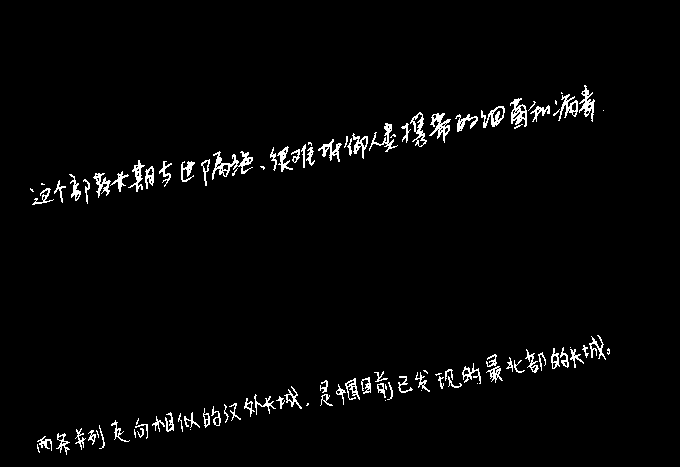 这个部落长期与世隔绝、很难抵御人类携带的细菌和病毒.
两条并列走向相似的汉外长城，是中国目前已发现的最北部的长城。